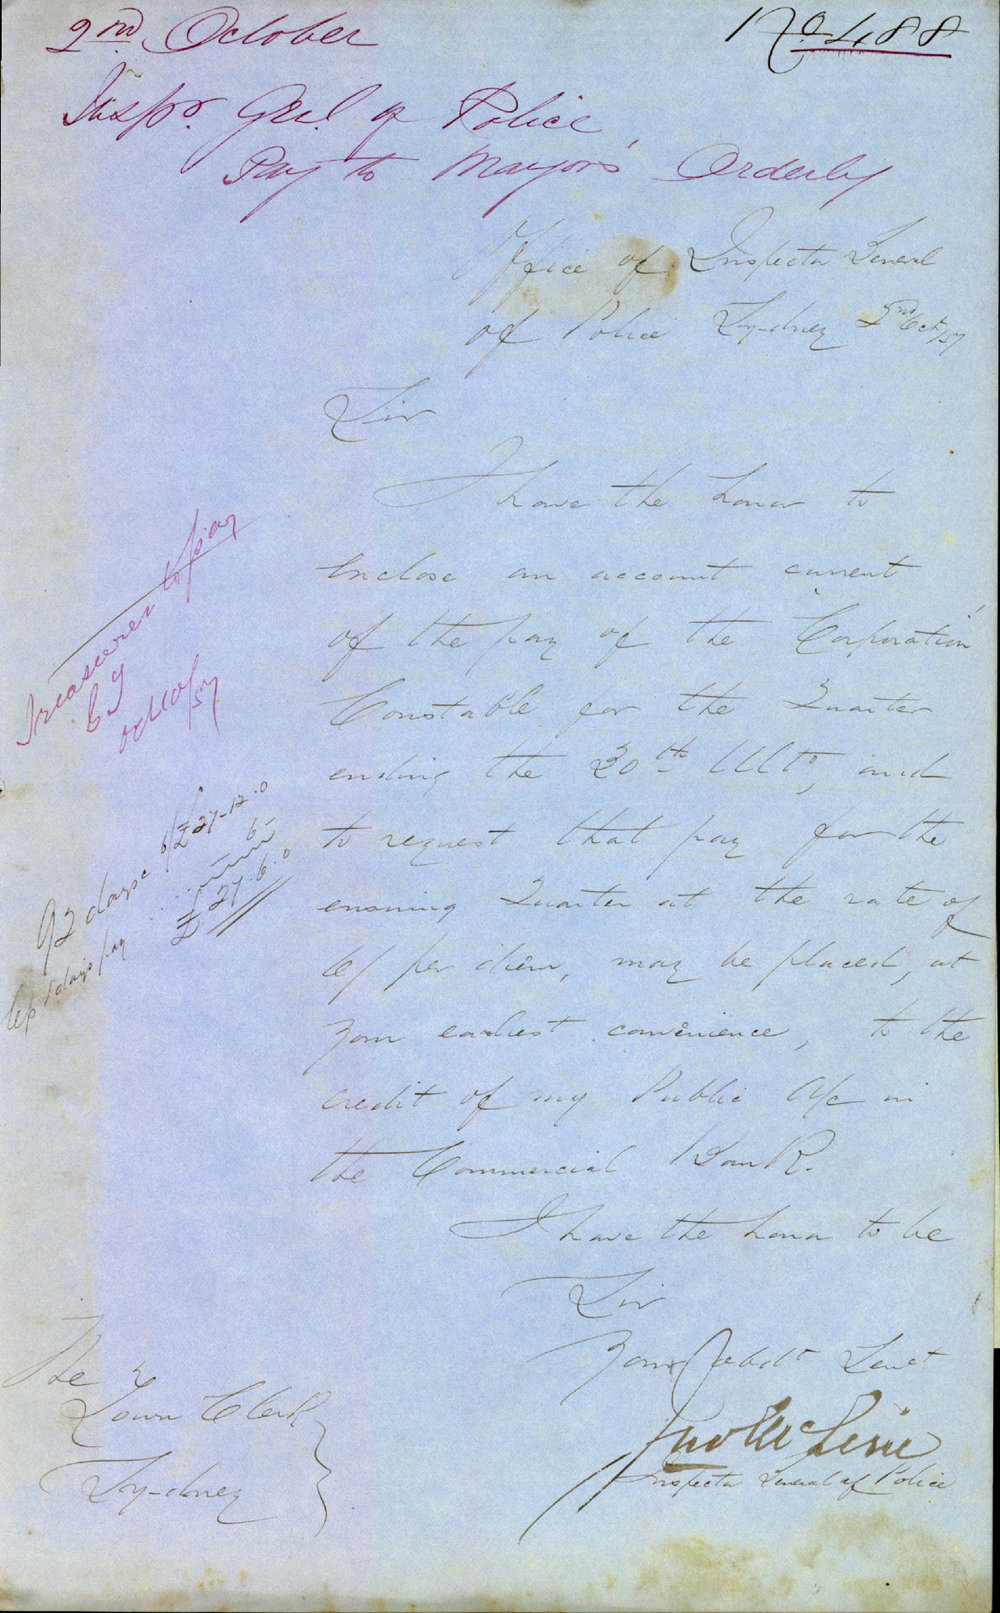 2nd October
No. 488
Inspr. Genl. of Police
Pay to Mayors' Orderly
Office of Inspector General
of Police Sydney 2nd Oct/57
Sir
I have the honor to
enclose an account current
of the pay of the Corporation
Constable for the Quarter
ending the 30th Ulto, and
to request that pay for the
ensuing Quarter at the rate of
6/ per diem, may be placed, at
your earliest convenience, to the
credit of my Public A/c in
the Commercial Bank.
I have the honor to be
Sir
Your Obedt Servt
Jno McLerie
Inspector General of Police
The
Town Clerk
Sydney
Treasurer to pay
92 days 6/ £27-12.0
1 days pay 6
£27.6.0